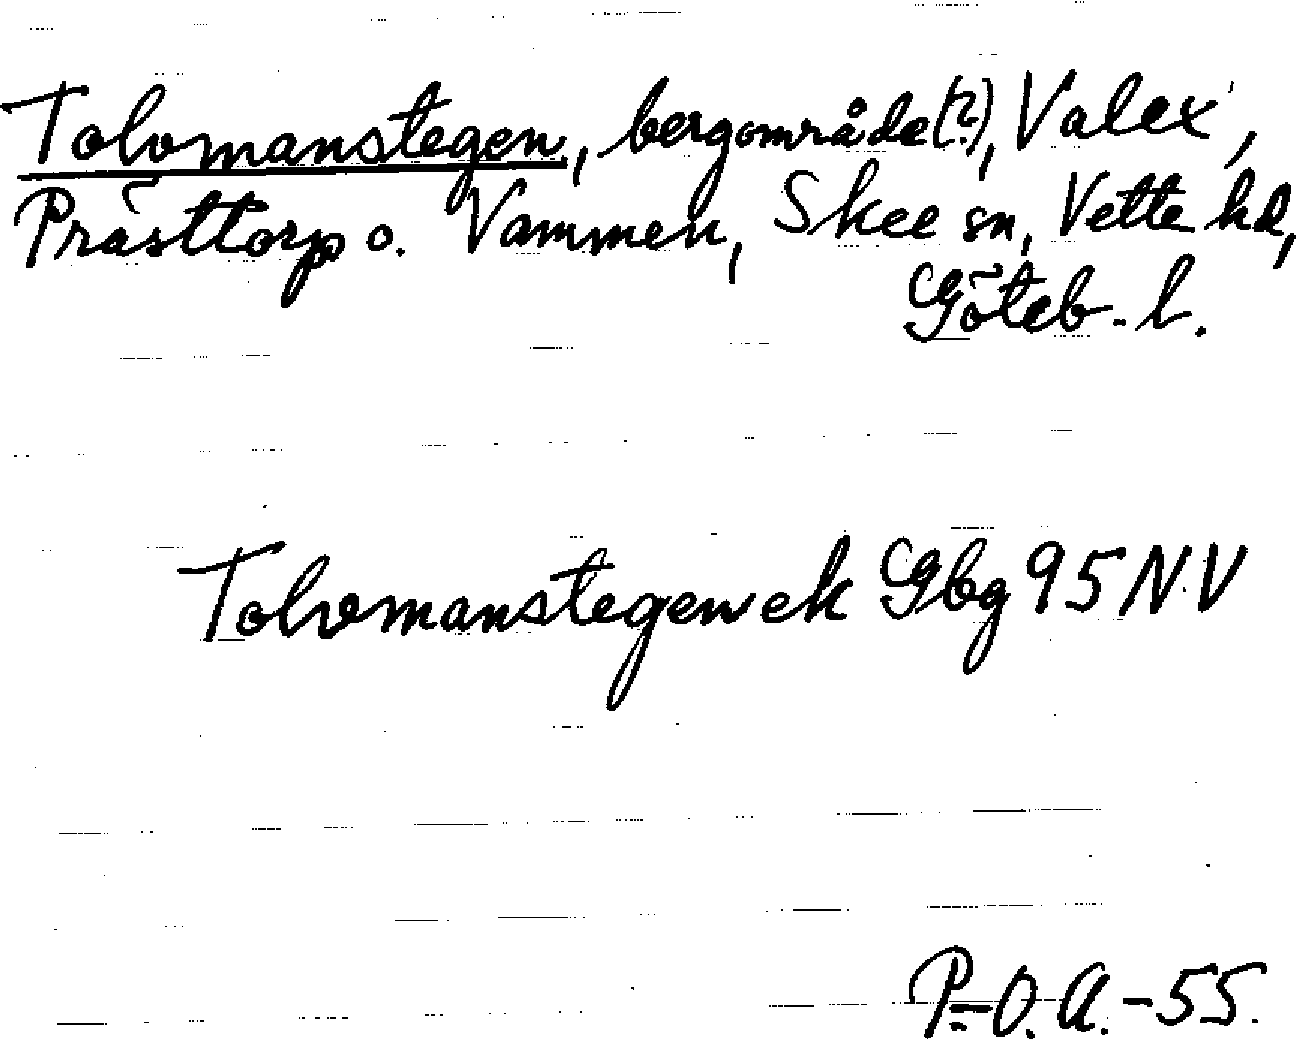 Tolvmanstegen, bergområde(?), Valex,
Prästtorp o. Vammen, Skee sn, Vette hd,
Göteb. l.
Tolvmanstegen ek Gbg 95 NV
P.-O. A. -55.